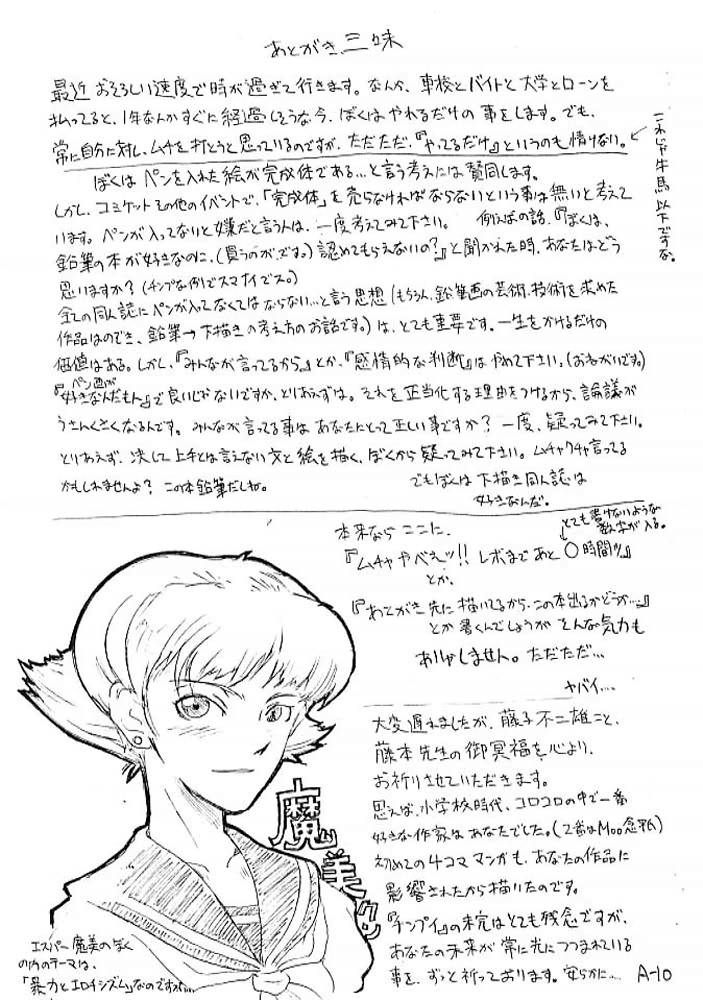 あとがき三昧
最近 おそろしい速度で時が過ぎて行きます。なんか、車校とバイトと大学とローンを
払ってると、1年なんかすぐに経過しそうな今、ぼくはやれるだけの事をします。でも、
常に自分に対し、ムチを打とうと思っているのですが、ただただ、『やってるだけ』というのも情けない。
これじゃ牛馬以下ですな。
ぼくはペンを入れた絵が完成体である…と言う考えには賛同します。
しかし、コミケットその他のイベントで、「完成体」を売らなければならないという事は無いと考えて
います。ペンが入ってないと嫌だと言う人は、一度考えてみて下さい。 例えばの話、『ぼくは、
鉛筆の本が好きなのに、(買うのが、です。)認めてもらえないの?』と聞かれた時、あなたはどう
思いますか?(チンプな例でスマナイでス。)
全ての同人誌にペンが入ってなくてはならない…と言う思想(もちろん、鉛筆画の芸術、技術を求めた
作品はのぞき、鉛筆→下描きの考え方のお話です。)は、とても重要です。一生をかけるだけの
価値はある。しかし、『みんなが言ってるから。』とか、『感情的な判断』はやめて下さい。(おねがいです。)
『ペン画が好きなんだもん』で良いじゃないですか、とりあえずは。それを正当化する理由をつけるから、論議が
うさんくさくなるんです。みんなが言ってる事はあなたにとって正しい事ですか? 一度、疑ってみて下さい。
とりあえず、決して上手とは言えない文と絵を描く、ぼくから疑ってみて下さい。ムチャクチャ言ってる
かもしれませんよ? この本鉛筆だしね。
でもぼくは下描き同人誌は
好きなんだ。
本来ならここに、
とても書けないような
数字が入る。
『ムチャやべぇッ!! レボまであと〇時間!!』
とか、
『あとがき先に描いてるから、この本出るかどうか…。』
とか書くんでしょうが そんな気力も
ありゃしません。ただただ…
ヤバイ…。
大変遅れましたが、藤子不二雄こと、
藤本先生の御冥福を心より、
お祈りさせていただきます。
思えば、小学校時代、コロコロの中で一番
好きな作家はあなたでした。(2番はMoo念平)
初めての4コママンガも、あなたの作品に
影響されたから描いたのです。
『チンプイ』の未完はとても残念ですが、
あなたの未来が常に光につつまれている
事を、ずっと祈っております。安らかに…
A-10
魔美クン
エスパー魔美のぼく
の内のテーマは、
「暴力とエロイシズム」なのですが…